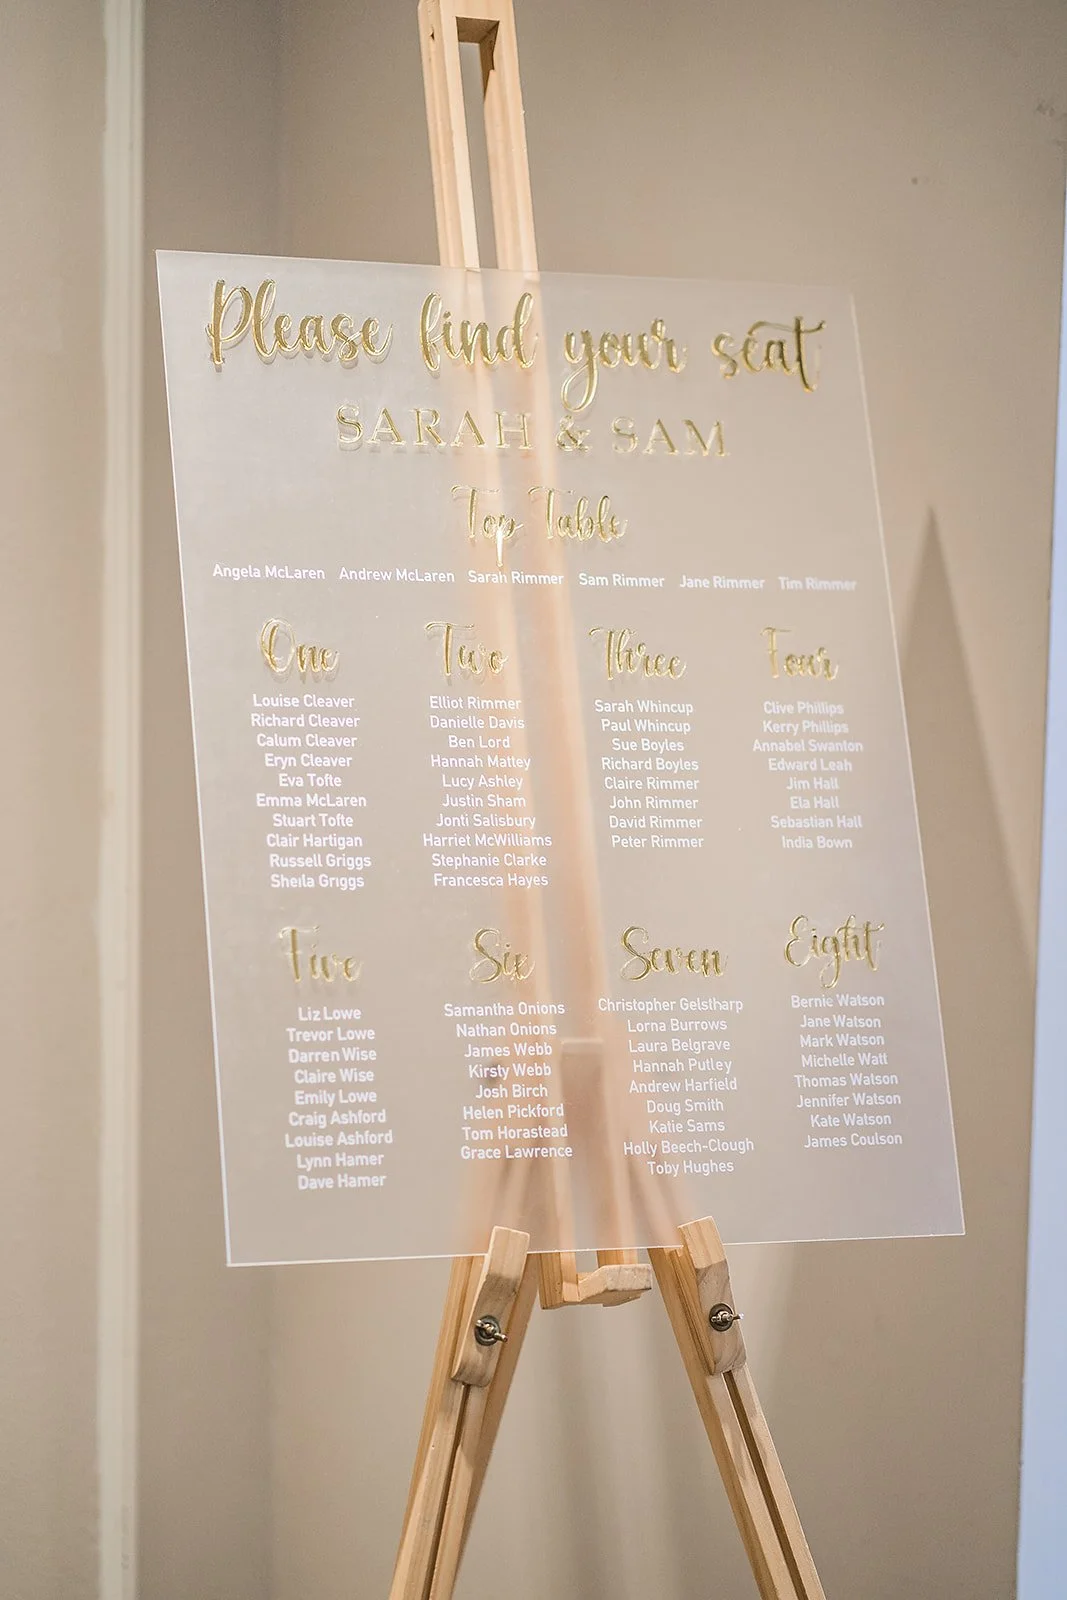 Please find your seat
SARAH & SAM
Top Table
Angela McLaren Andrew McLaren Sarah Rimmer Sam Rimmer Jane Rimmer Tim Rimmer
One
Louise Cleaver
Richard Cleaver
Calum Cleaver
Eryn Cleaver
Eva Tofte
Emma McLaren
Stuart Tofte
Clair Hartigan
Russell Griggs
Sheila Griggs
Two
Elliot Rimmer
Danielle Davis
Ben Lord
Hannah Mattey
Lucy Ashley
Justin Sham
Jonti Salisbury
Harriet McWilliams
Stephanie Clarke
Francesca Hayes
Three
Sarah Whincup
Paul Whincup
Sue Boyles
Richard Boyles
Claire Rimmer
John Rimmer
David Rimmer
Peter Rimmer
Four
Clive Phillips
Kerry Phillips
Annabel Swanton
Edward Leah
Jim Hall
Ela Hall
Sebastian Hall
India Bown
Five
Liz Lowe
Trevor Lowe
Darren Wise
Claire Wise
Emily Lowe
Craig Ashford
Louise Ashford
Lynn Hamer
Dave Hamer
Six
Samantha Onions
Nathan Onions
James Webb
Kirsty Webb
Josh Birch
Helen Pickford
Tom Horastead
Grace Lawrence
Seven
Christopher Gelstharp
Lorna Burrows
Laura Belgrave
Hannah Putley
Andrew Harfield
Doug Smith
Katie Sams
Holly Beech-Clough
Toby Hughes
Eight
Bernie Watson
Jane Watson
Mark Watson
Michelle Watt
Thomas Watson
Jennifer Watson
Kate Watson
James Coulson